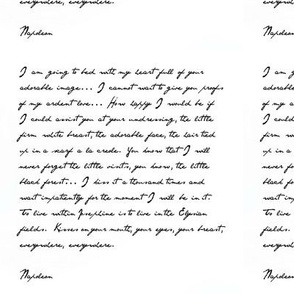 everywhere, everywhere.
Napoleon
I am going to bed with my heart full of your
adorable image... I cannot wait to give you proofs
of my ardent love... How happy I would be if
I could assist you at your undressing, the little
firm white breast, the adorable face, the hair tied
up in a scarf a la creole. You know that I will
never forget the little visits, you know, the little
black forest... I kiss it a thousand times and
wait impatiently for the moment I will be in it.
To live within Josephine is to live in the Elysian
fields. Kisses on your mouth, your eyes, your breast,
everywhere, everywhere.
Napoleon
Napoleon
I am g
adorable
of my a
I could
firm wh
up in a
never fo
black fo
wait im
To live
fields.
everywh
Napoleon